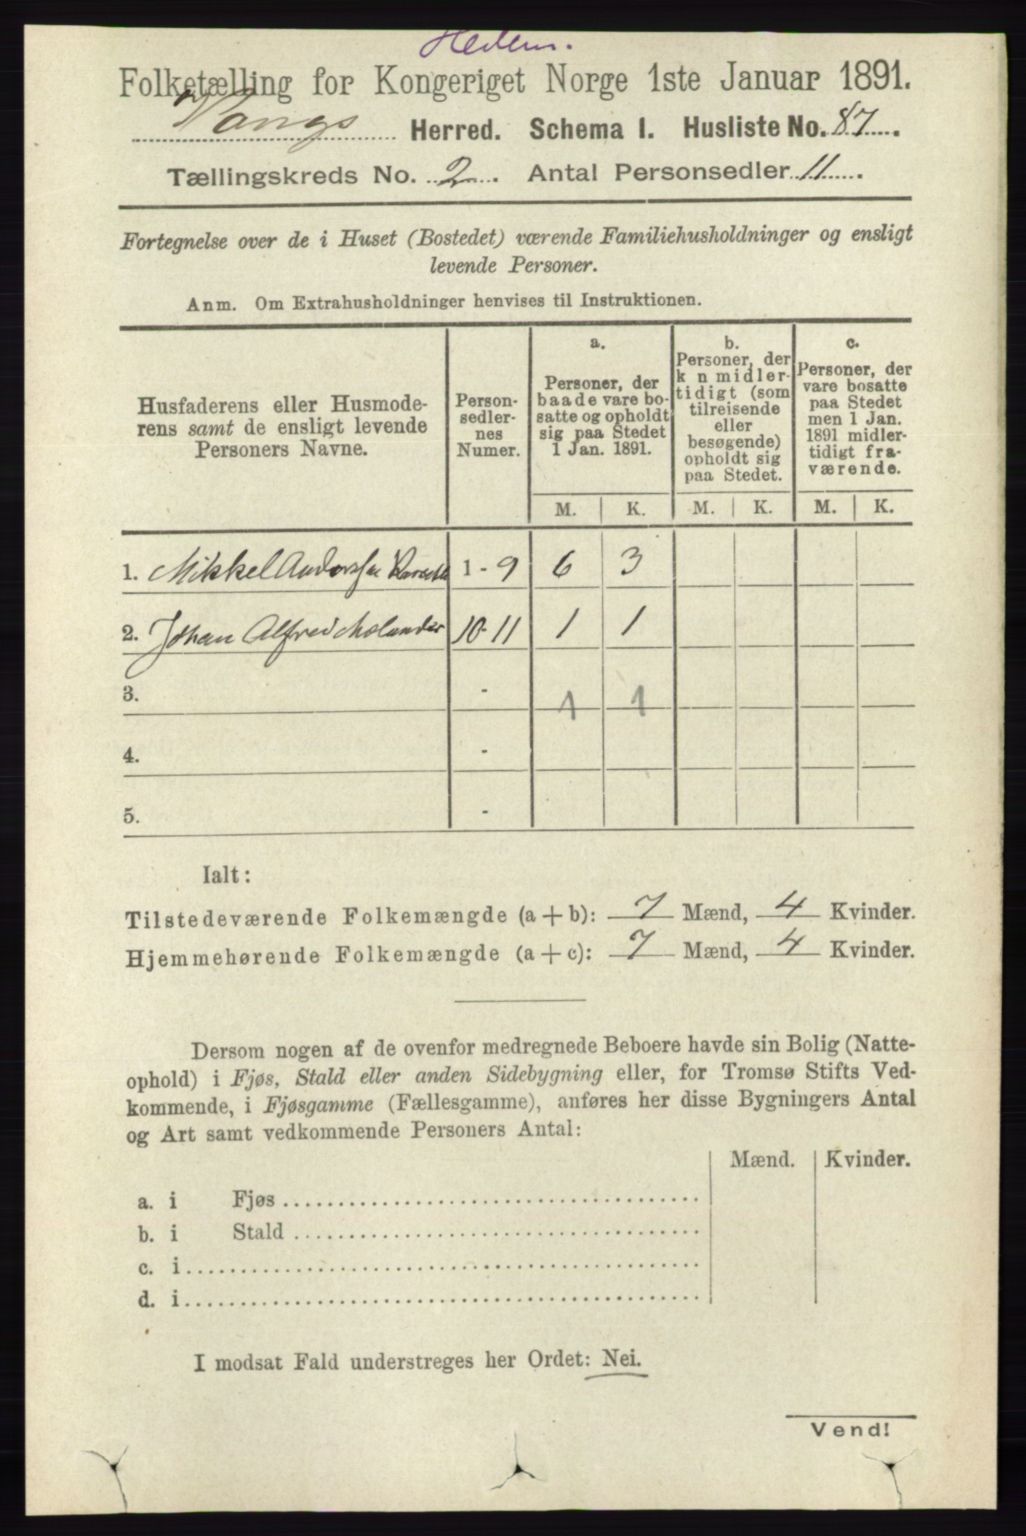 Hedem.
Folketælling for Kongeriget Norge 1ste Januar 1891.
Vangs Herred. Schema I. Husliste No. 87.
Tællingskreds No. 2. Antal Personsedler 11.
Fortegnelse over de i Huset (Bostedet) værende Familiehusholdninger og ensligt
levende Personer.
Anm. Om Extrahusholdninger henvises til Instruktionen.
Husfaderens eller Husmode-
rens samt de ensligt levende
Personers Navne.
Person-
sedler-
nes
Numer.
a.
Personer, der
baade vare bo-
satte og opholdt
sig paa Stedet
1 Jan. 1891.
b.
Personer, der
k n midler-
tidigt (som
tilreisende
eller
besøgende)
opholdt sig
paa Stedet.
c.
Personer, der
vare bosatte
paa Stedet
men 1 Jan.
1891 midler-
tidigt fra-
værende.
M. K. M. K. M. K.
1. Mikkel Anderssen 1-9 6 3
2. Johan Alfred Molander 10-11 1 1
3. - 1 1
4. -
5. -
Ialt:
Tilstedeværende Folkemængde (a+b): 7 Mænd, 4 Kvinder.
Hjemmehørende Folkemængde (a+c): 7 Mænd, 4 Kvinder.
Dersom nogen af de ovenfor medregnede Beboere havde sin Bolig (Natte-
ophold) i Fjøs, Stald eller anden Sidebygning eller, for Tromsø Stifts Ved-
kommende, i Fjøsgamme (Fællesgamme), anføres her disse Bygningers Antal
og Art samt vedkommende Personers Antal:
Mænd. Kvinder.
a. i Fjøs
b. i Stald
c. i
d. i
I modsat Fald understreges her Ordet: Nei.
Vend!